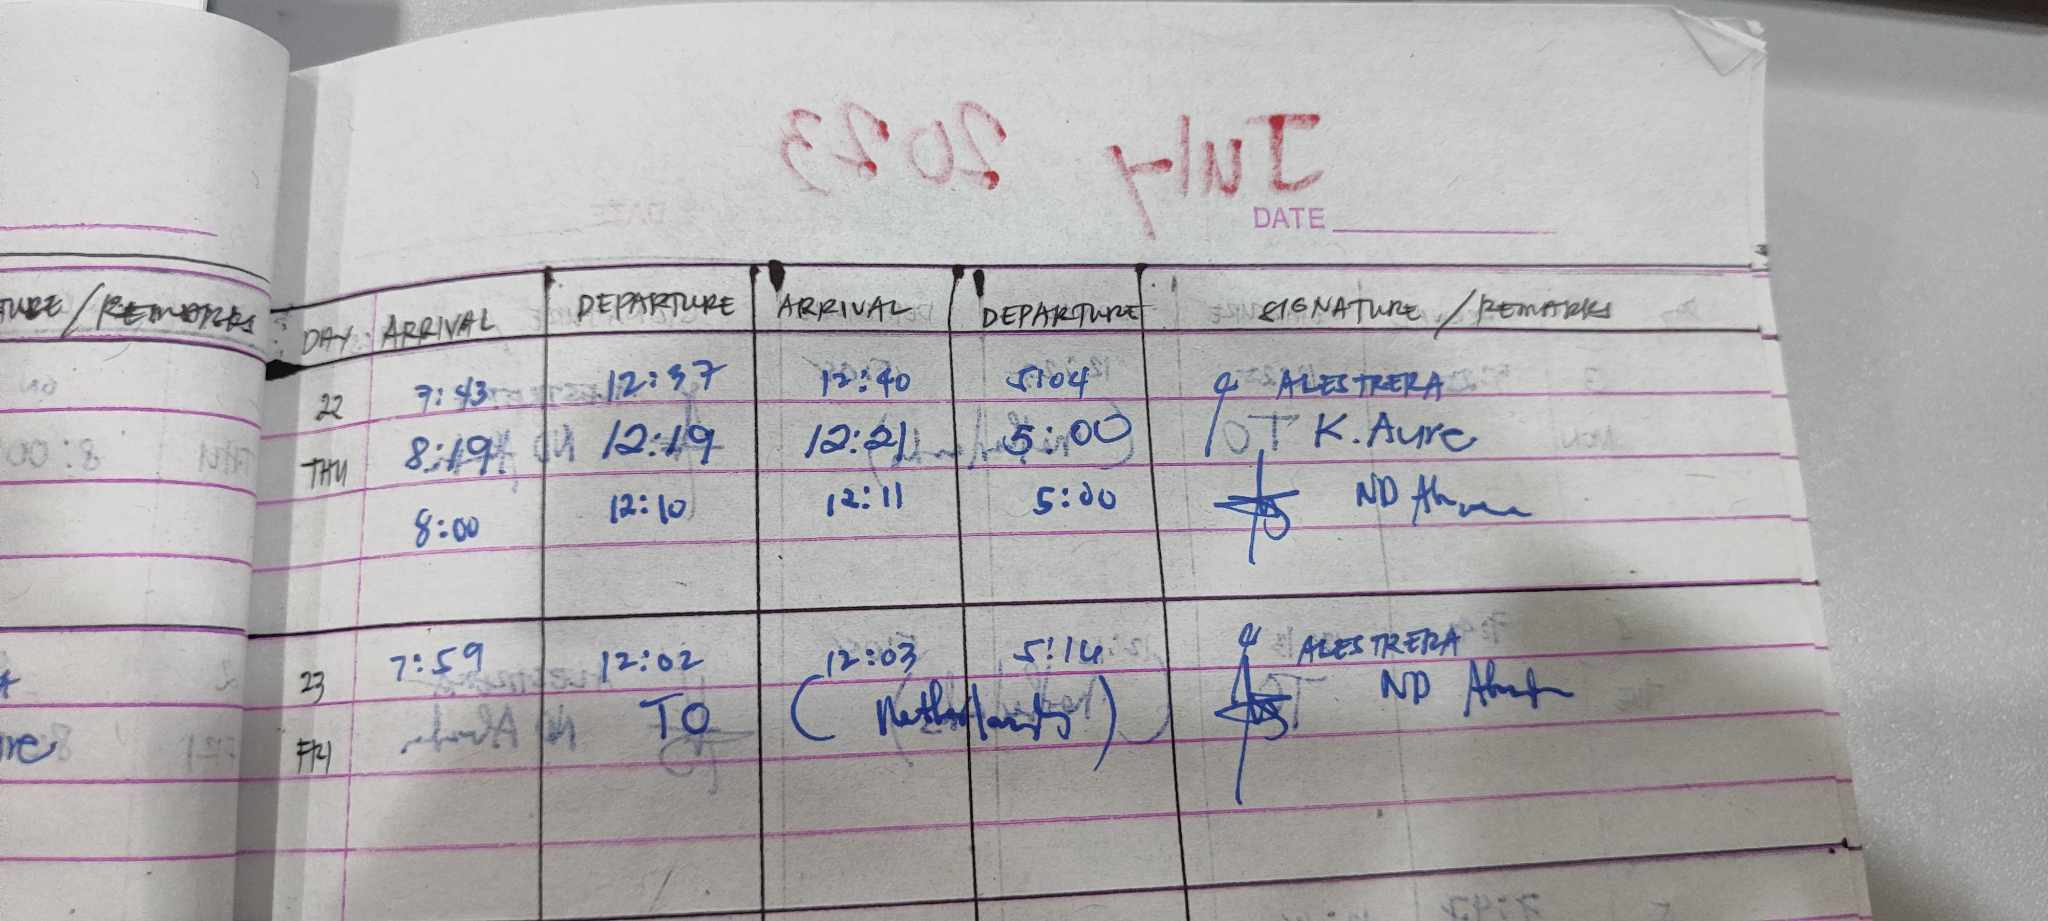 July 2023
DATE
TURE / REMARKS
DAY ARRIVAL DEPARTURE ARRIVAL DEPARTURE SIGNATURE / REMARKS
22 7:43 12:37 12:40 5:04 ALESTRERA
THU 8:19 12:19 12:21 5:00 K. Aure
8:00 12:10 12:11 5:00 ND
23 7:59 12:02 12:03 5:14 ALESTRERA
FRI TO ( Netherlands ) ND